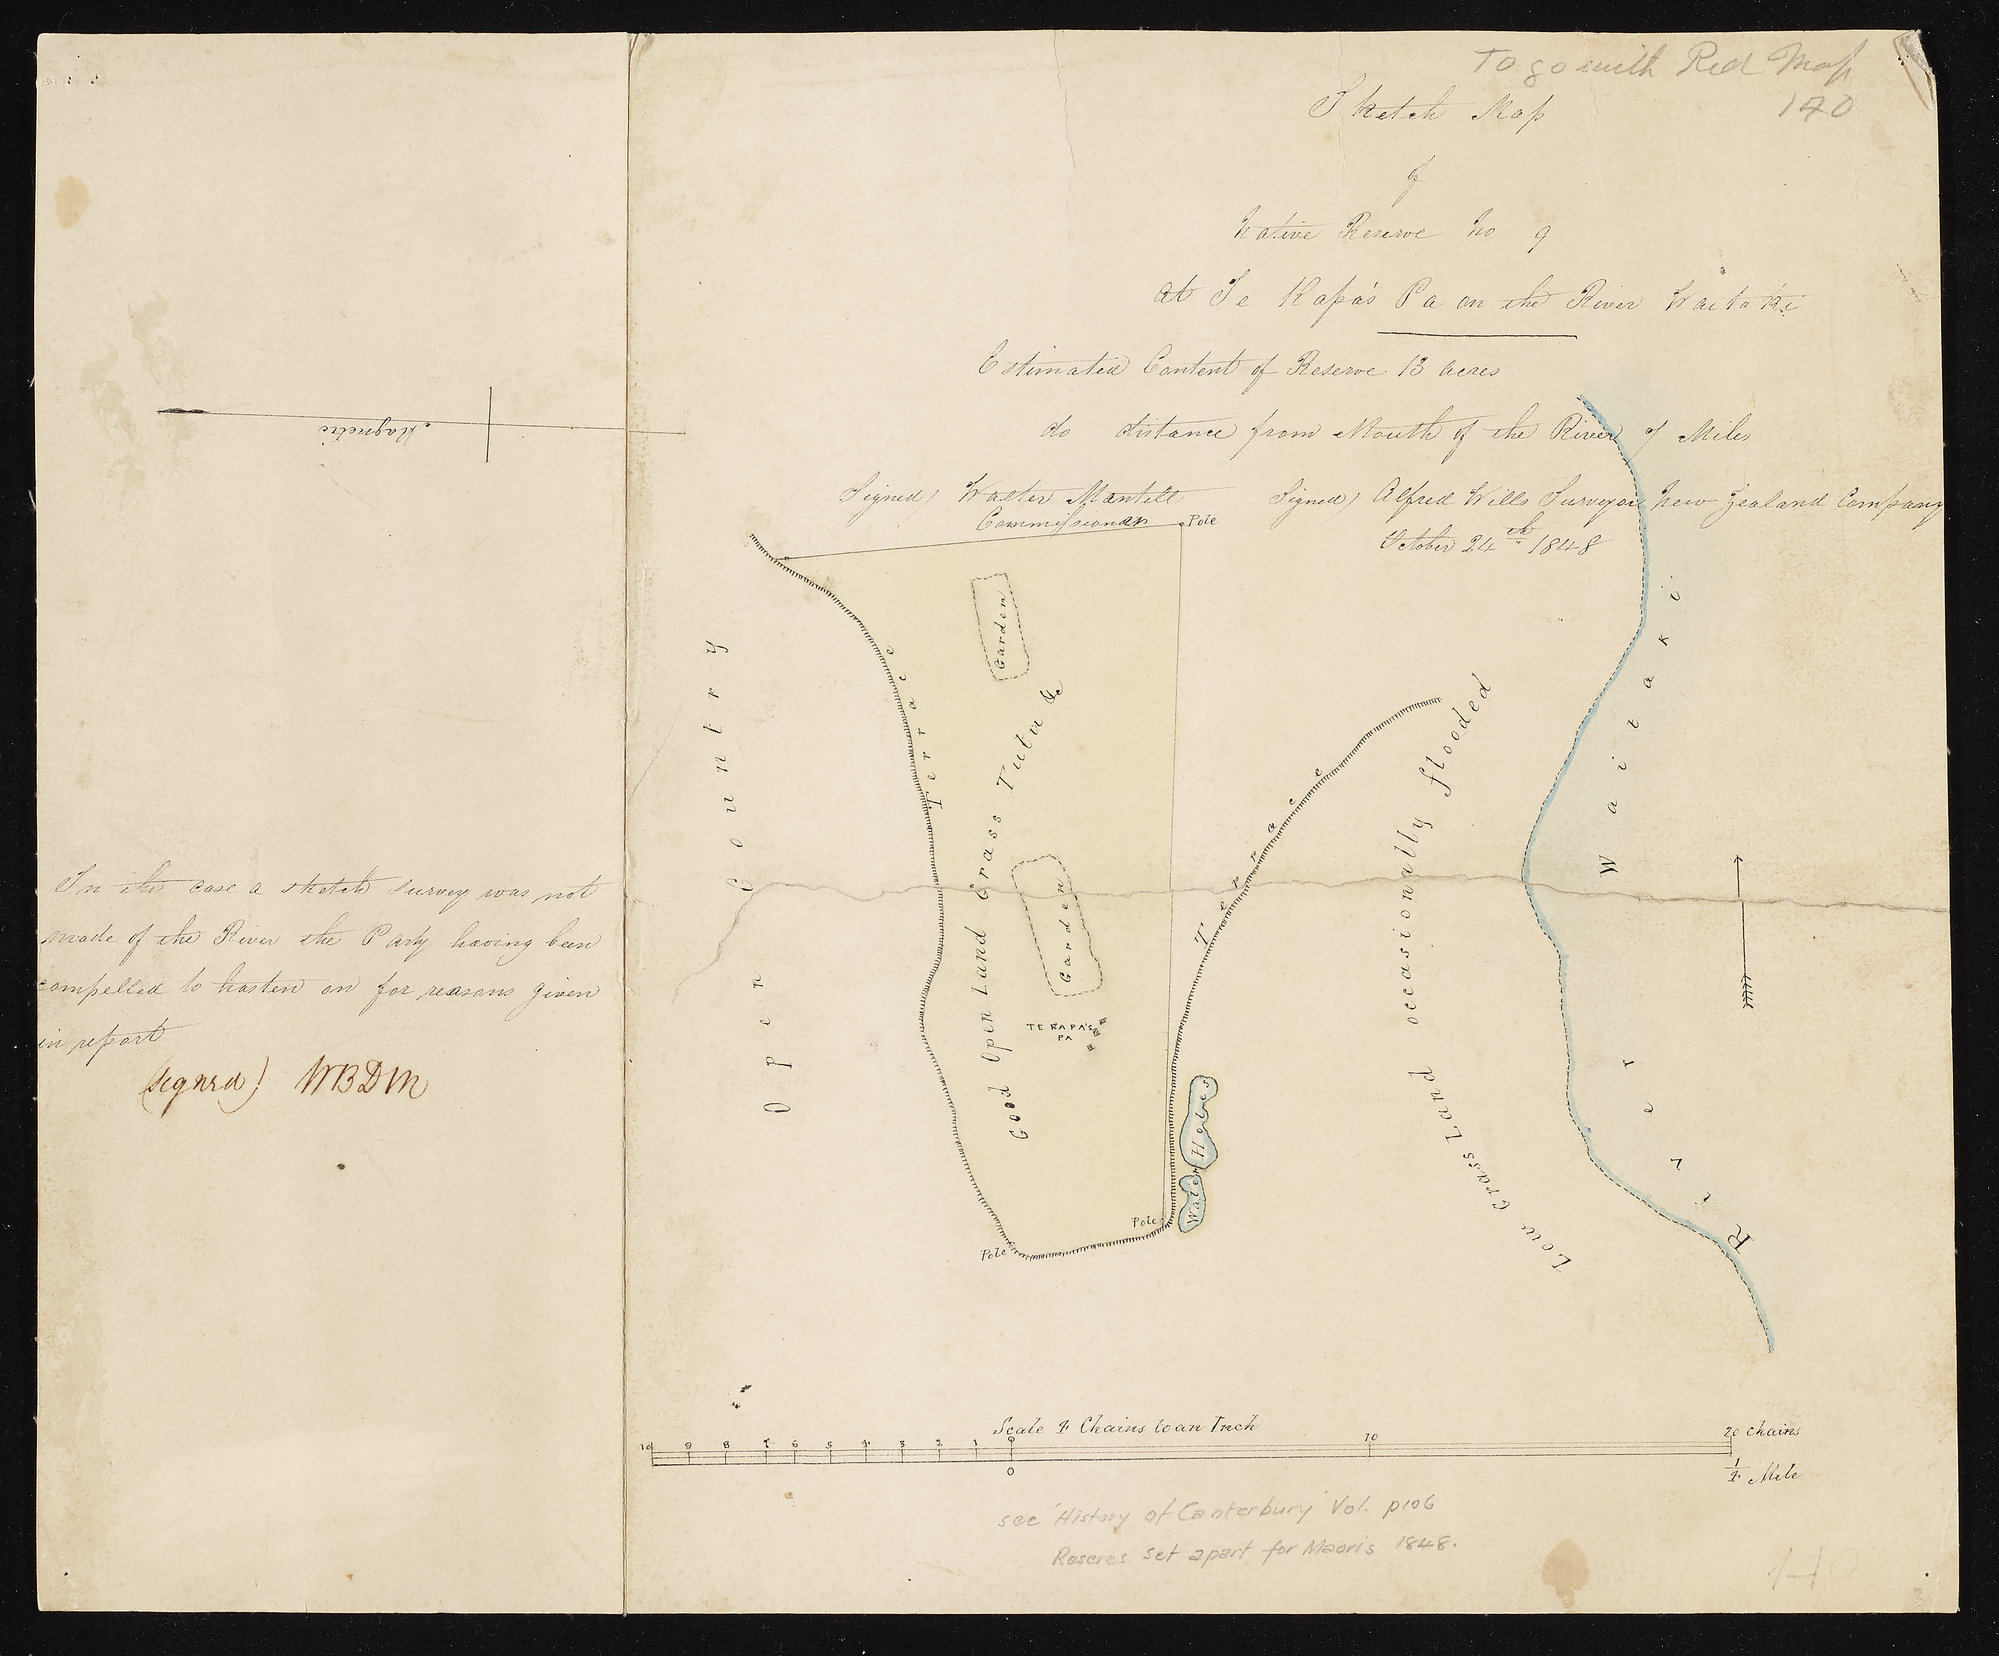 To go with Red Map
140
Sketch Map
of
Native Reserve No 9
at Te Kapa's Pa on the River Waitaki
Estimated Content of Reserve 13 acres
do distance from Mouth of the River 7 Miles
Signed) Walter Mantell
Commissioner
Signed) Alfred Wills Surveyor New Zealand Company
October 24th 1848
Magnetic
In this case a sketch survey was not
made of the River the Party having been
compelled to hasten on for reasons given
in report
(signed) WBDM
Pole
Open Country
Terrace
Garden
Good Open Land Grass Tutu &c
Garden
TE KAPA'S
PA
Terrace
Water Holes
Pole
Pole
Low Grass Land occasionally flooded
River Waitaki
Scale 4 Chains to an Inch
10 9 8 7 6 5 4 3 2 1 0 10 20 chains
0 1/4 Mile
see 'History of Canterbury' Vol. p106
Reseres set apart for Maoris 1848.